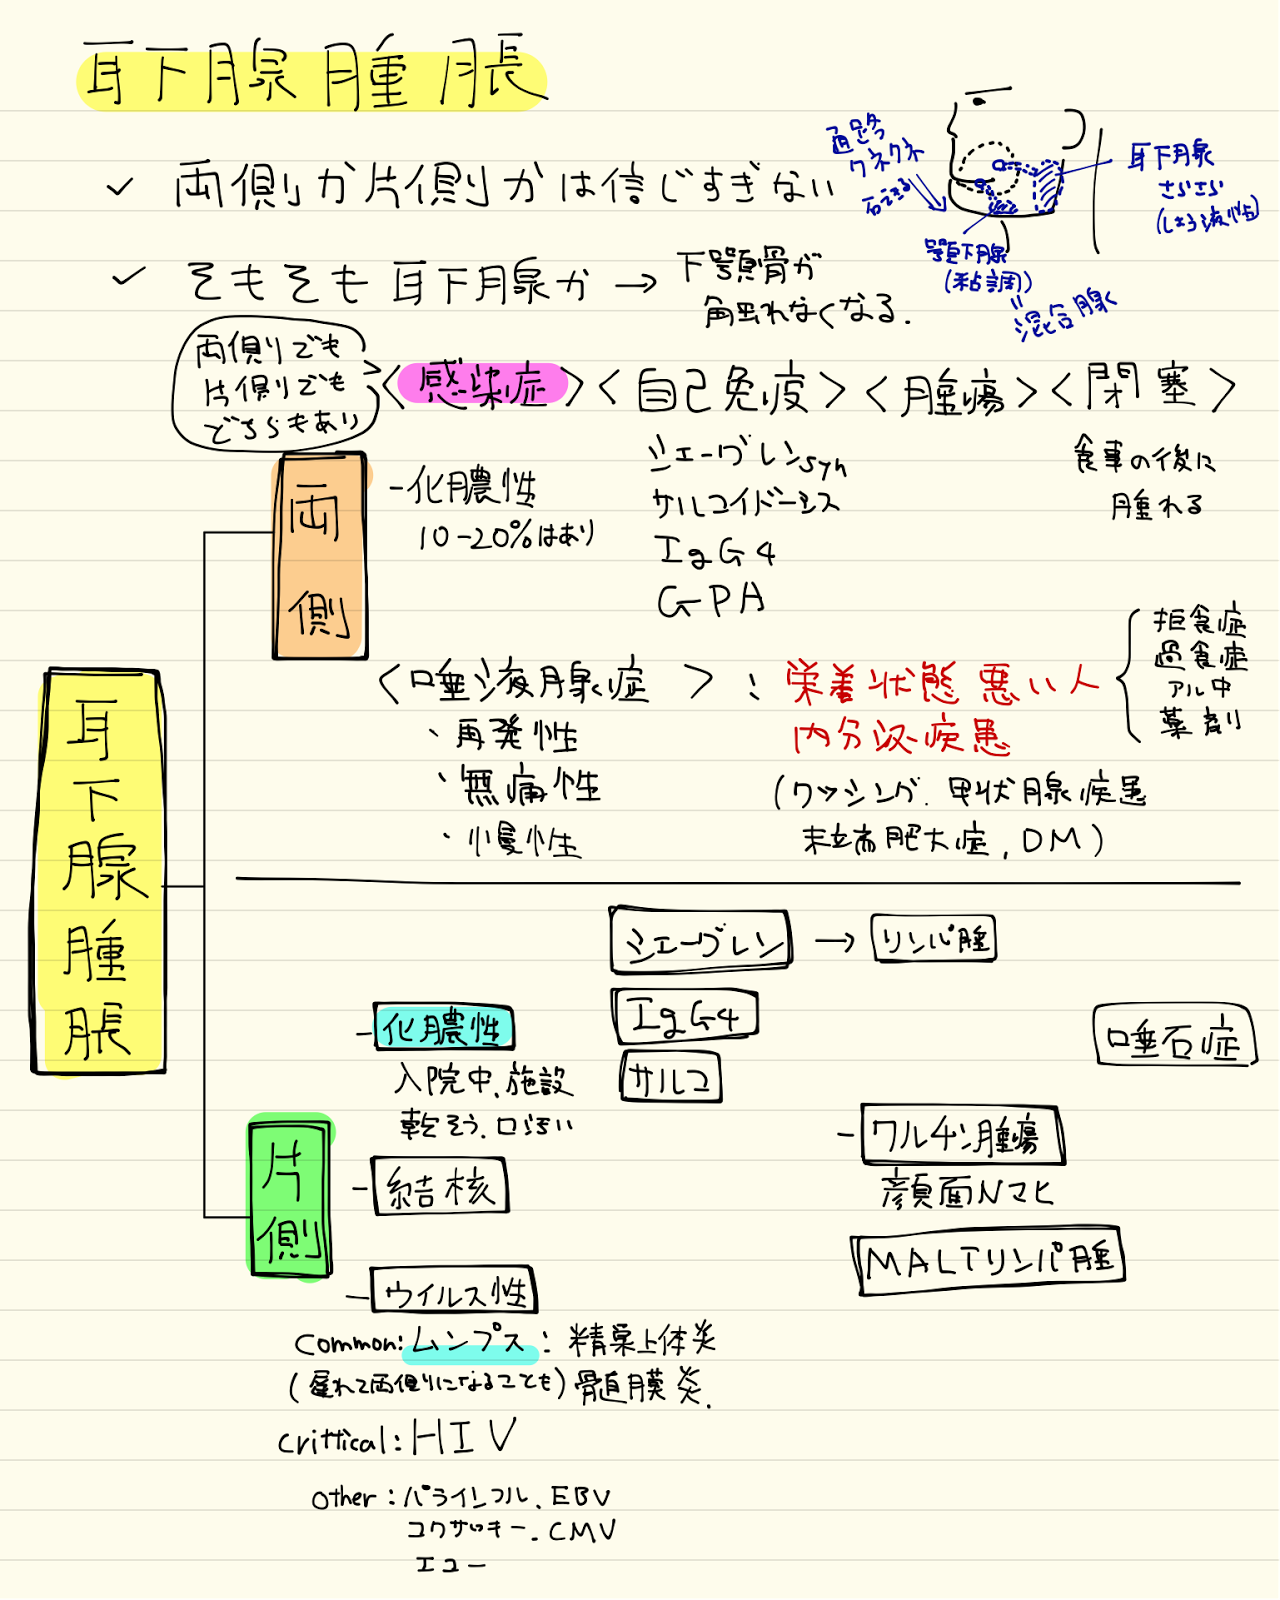 耳下腺腫脹
✓ 両側か片側かは信じすぎない
✓ そもそも耳下腺か → 下顎骨が
触れなくなる.
通路
クネクネ
石できる
耳下腺
さらさら
(しょう液性)
顎下腺
(粘調)
=
混合腺
両側でも
片側でも
どちらもあり
<感染症> <自己免疫> <腫瘍> <閉塞>
両側
-化膿性
10-20%はあり
シェーグレンsyn
サルコイドーシス
IgG4
GPA
食事の後に
腫れる
<唾液腺症> : 栄養状態悪い人
内分泌疾患
拒食症
過食症
アル中
薬剤
・再発性
・無痛性
・慢性
(クッシング. 甲状腺疾患
末端肥大症, DM)
耳下腺腫脹
シェーグレン → リンパ腫
IgG4
サルコ
唾石症
片側
-化膿性
入院中.施設
乾そう.口汚い
-結核
-ワルチン腫瘍
顔面Nマヒ
MALTリンパ腫
-ウイルス性
common:ムンプス: 精巣上体炎
(遅れて両側になることも) 髄膜炎.
crittical:HIV
other:パラインフル. EBV
コクサッキー. CMV
エコー